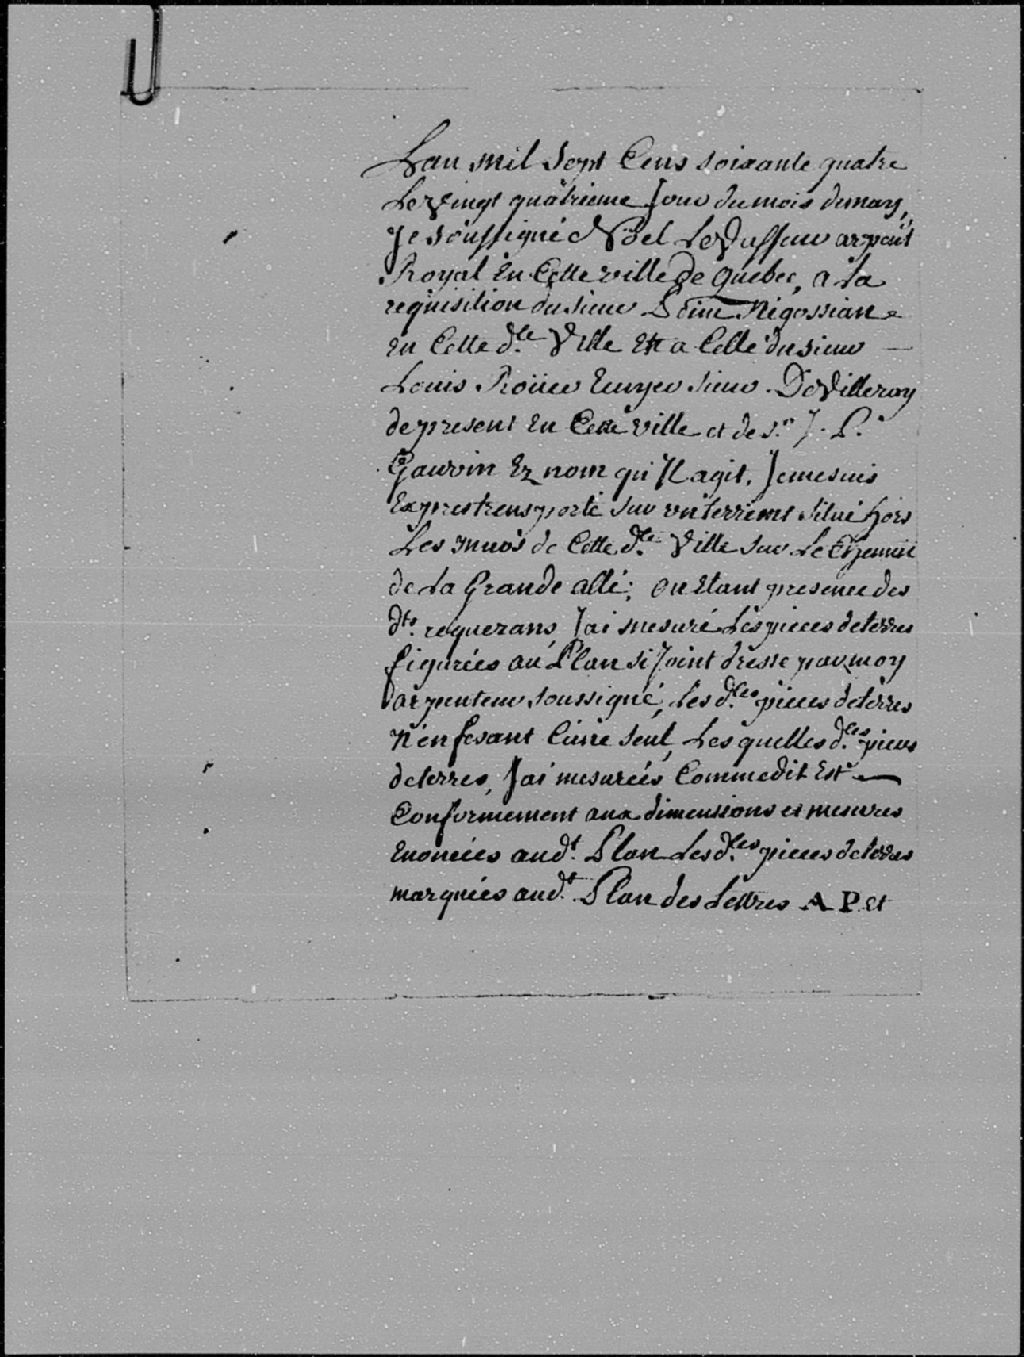 Lan mil Sept Cens soixante quatre
Le Vingt quatrieme Jour du mois de may,
Je soussigné Nöel Le Vasseur arpent
Royal En Cette ville De quebec, a la
requisition du sieur Négossian
En Cette d.te Ville Et a Celle du sieur
Louis Roüer Ecuyer sieur De Villeray
de present En Cette ville et de s.r J. P.
Gauvin Ez nom qu'Il agit. Je me suis
Exprestrensporté sur un terrient situé hors
Les murs de Cette d.te Ville sur Le Chemin
de La Grande allé; ou Etant presence des
dts. requerans, J'ai mesuré Les pieces de terres
figurées au Plan si Joint dressé par moy
arpenteur soussigné, Les d.tes pieces de terres
N'en fesant Cune seul, Les quelles d.tes pieces
de terres, J'ai mesurées Comme dit Est
Conformement aux dimensions et mesures
Enoncées aud.t Plan Les d.tes pieces de terres
marquées aud.t Plan des Lettres A P. et